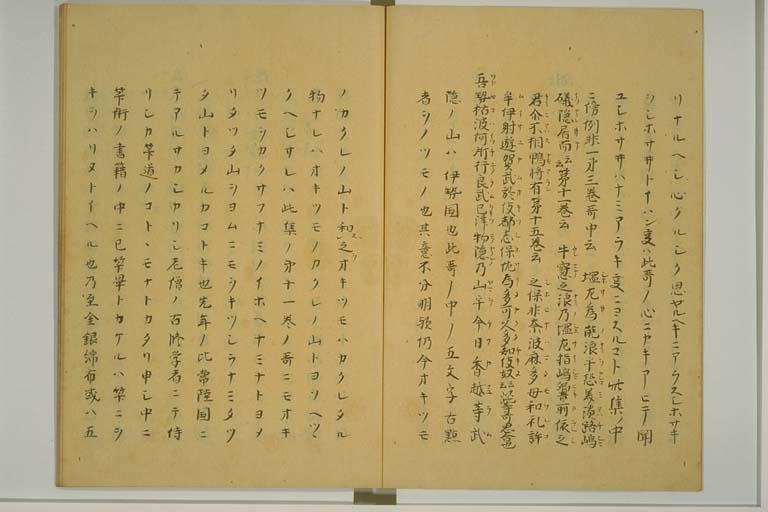 リナルヘシ心クルシク思ヤルヘキニアラスシホサキ
シシホサヰトイハン事ハ此哥ノ心ニカキアヒテ聞
ユシホサヰハナミアラキ事ニヨスルコト此集ノ中
ニ傍例非一第三巻哥中云 塩左為能浪乎恐美淡路嶋
礒隠居而云云第十一巻云 牛窓之浪乃塩左猪嶋響所依之
君尓不相鴨将有第十五巻云 之保非奈波麻多母和礼許
牟伊射遊賀武於伎都志保佐為多可久多知伎奴云云
吾勢枯波何所行良武已津物隠乃山乎今日香越等武
隠ノ山ハ伊勢国也此哥ノ中ノ五文字古點
者シノツモノ也其意不分明歟仍今オキツモ
ノカクレノ山ト和之オキツモハカクレタル
物ナレハオキツモノカクレノ山トヨソヘツヽ
クヘシサレハ此集ノ第十一巻ノ哥ニモオキ
ツモシカクサフナミノイホヘナミナトヨメ
リタツタ山シヨムニモシキツシラナミタツ
タ山トヨメルカコトキ也先年ノ比常陸国ニ
テアルサカシカリシ老僧ノ古修学者ニテ侍
リシカ筭道ノコトヽモナトカタリ申シ中ニ
筭術ノ書籍ノ中ニ已筭畢トカケルハ筭ニシ
キシハリヌトイヘル也乃至金銀綿布或ハ五